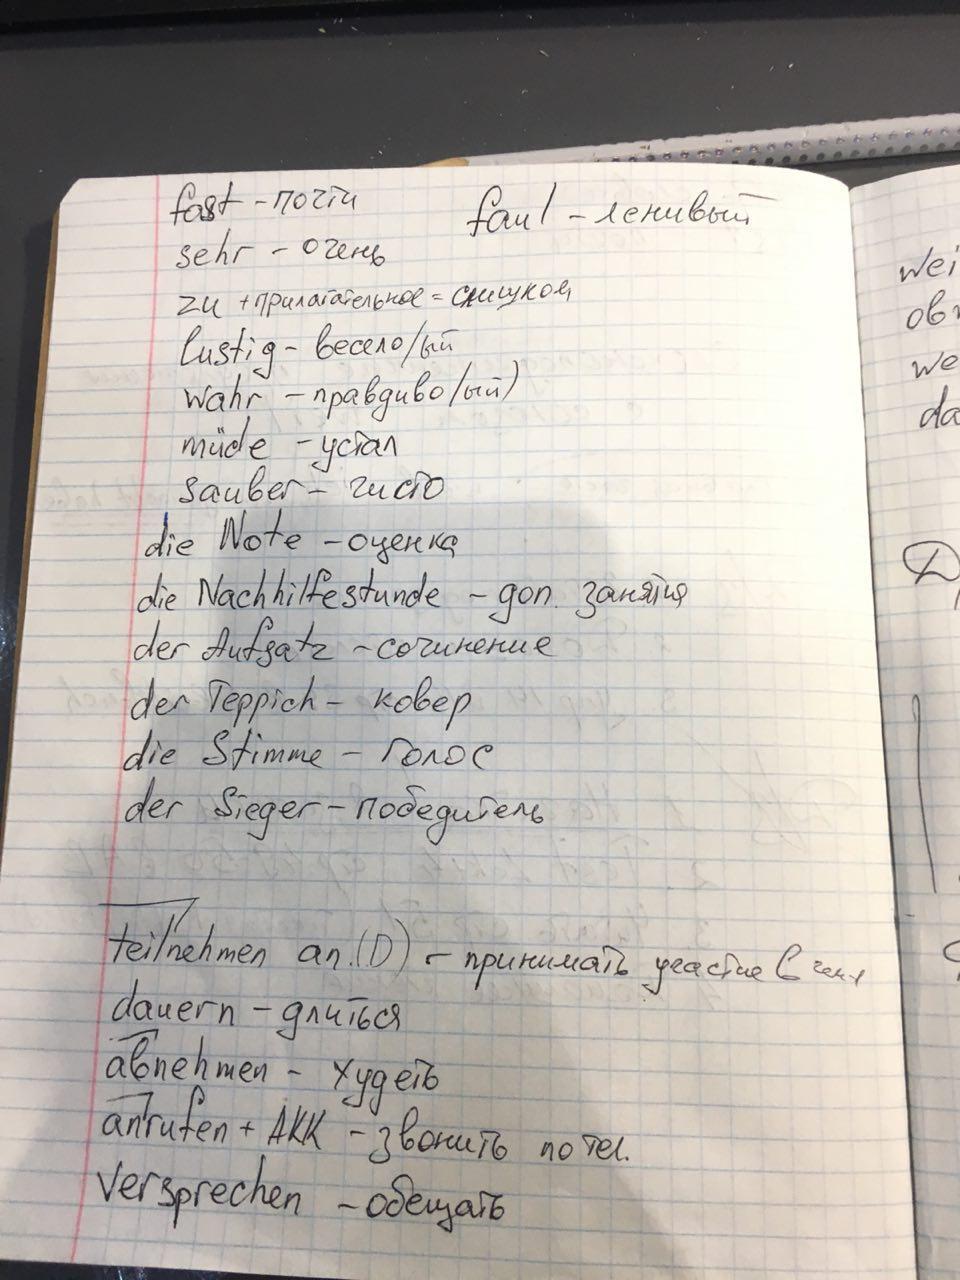 fast - почти
faul - ленивый
sehr - очень
zu + прилагательное = слишком
lustig - весело/ый
wahr - правдиво/ый)
müde - устал
sauber - чисто
die Note - оценка
die Nachhilfestunde - доп. занятия
der Aufsatz - сочинение
der Teppich - ковер
die Stimme - голос
der Sieger - победитель
teilnehmen an.(D) - принимать участие в чем
dauern - длиться
abnehmen - худеть
anrufen + AKK - звонить по тел.
versprechen - обещать
wei
we
da